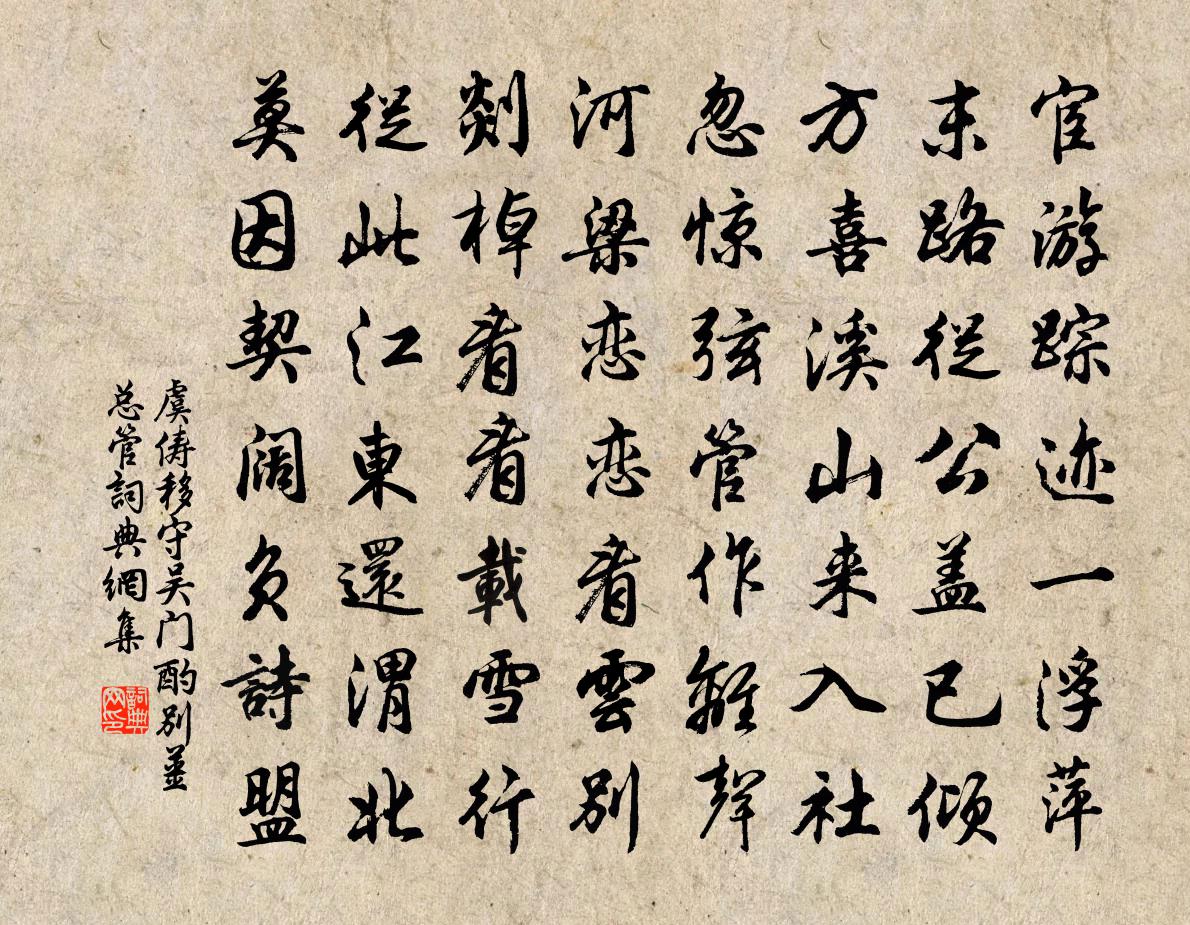 宦游踪迹一浮萍
末路從公盖已倾
方喜溪山来入社
忽惊弦管作離聲
河梁恋恋看雲别
剡棹看看載雪行
從此江東還渭北
莫因契阔负詩盟
虞俦移守吴门酌别並
总管詞典網集
詞典
网印